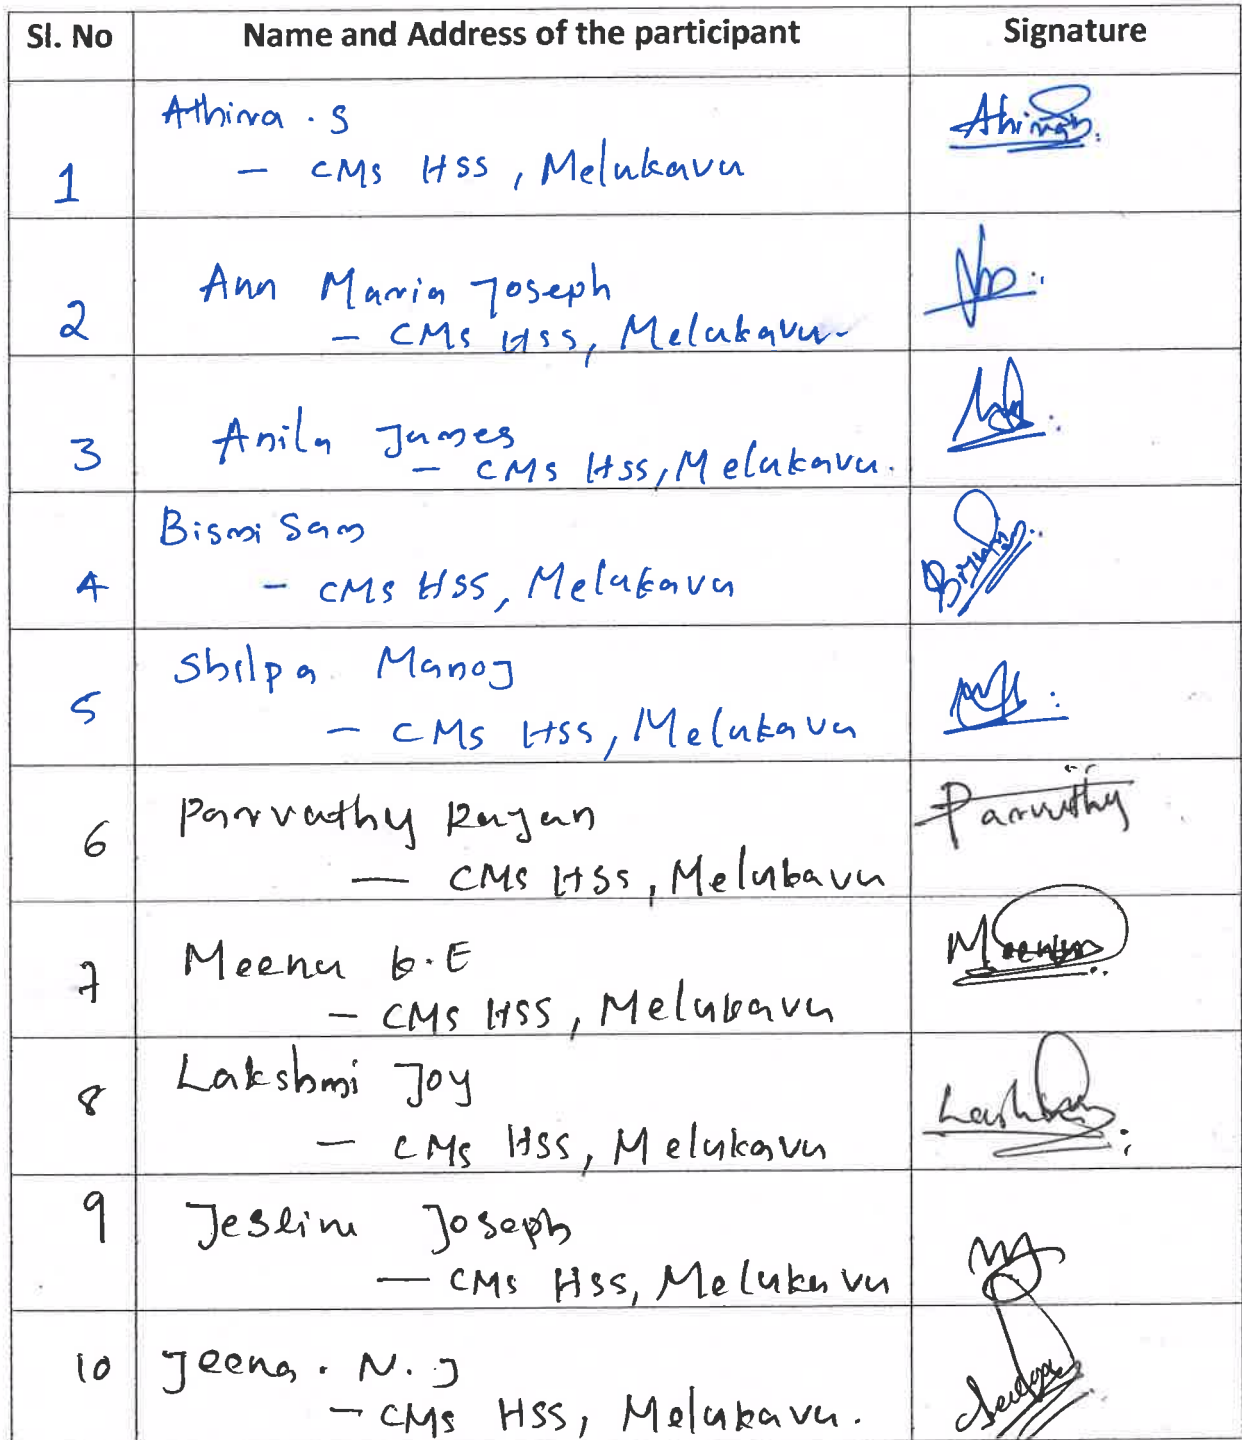 Sl. No Name and Address of the participant Signature
Athira . S Athira
1 - CMS HSS, Melukavu
2 Ann Maria Joseph
- CMS HSS, Melukavu.
3 Anila James
- CMS HSS, Melukavu.
Bismi Sam
4 - CMS HSS, Melukavu
Shilpa Manoj
5 - CMS HSS, Melukavu
6 Parvathy Rajan Parvathy
- CMS HSS, Melukavu
7 Meenu K.E Meenu
- CMS HSS, Melukavu
8 Lakshmi Joy
- CMS HSS, Melukavu
9 Jeslin Joseph
- CMS HSS, Melukavu
10 Jeena . N. J
- CMS HSS, Melukavu.